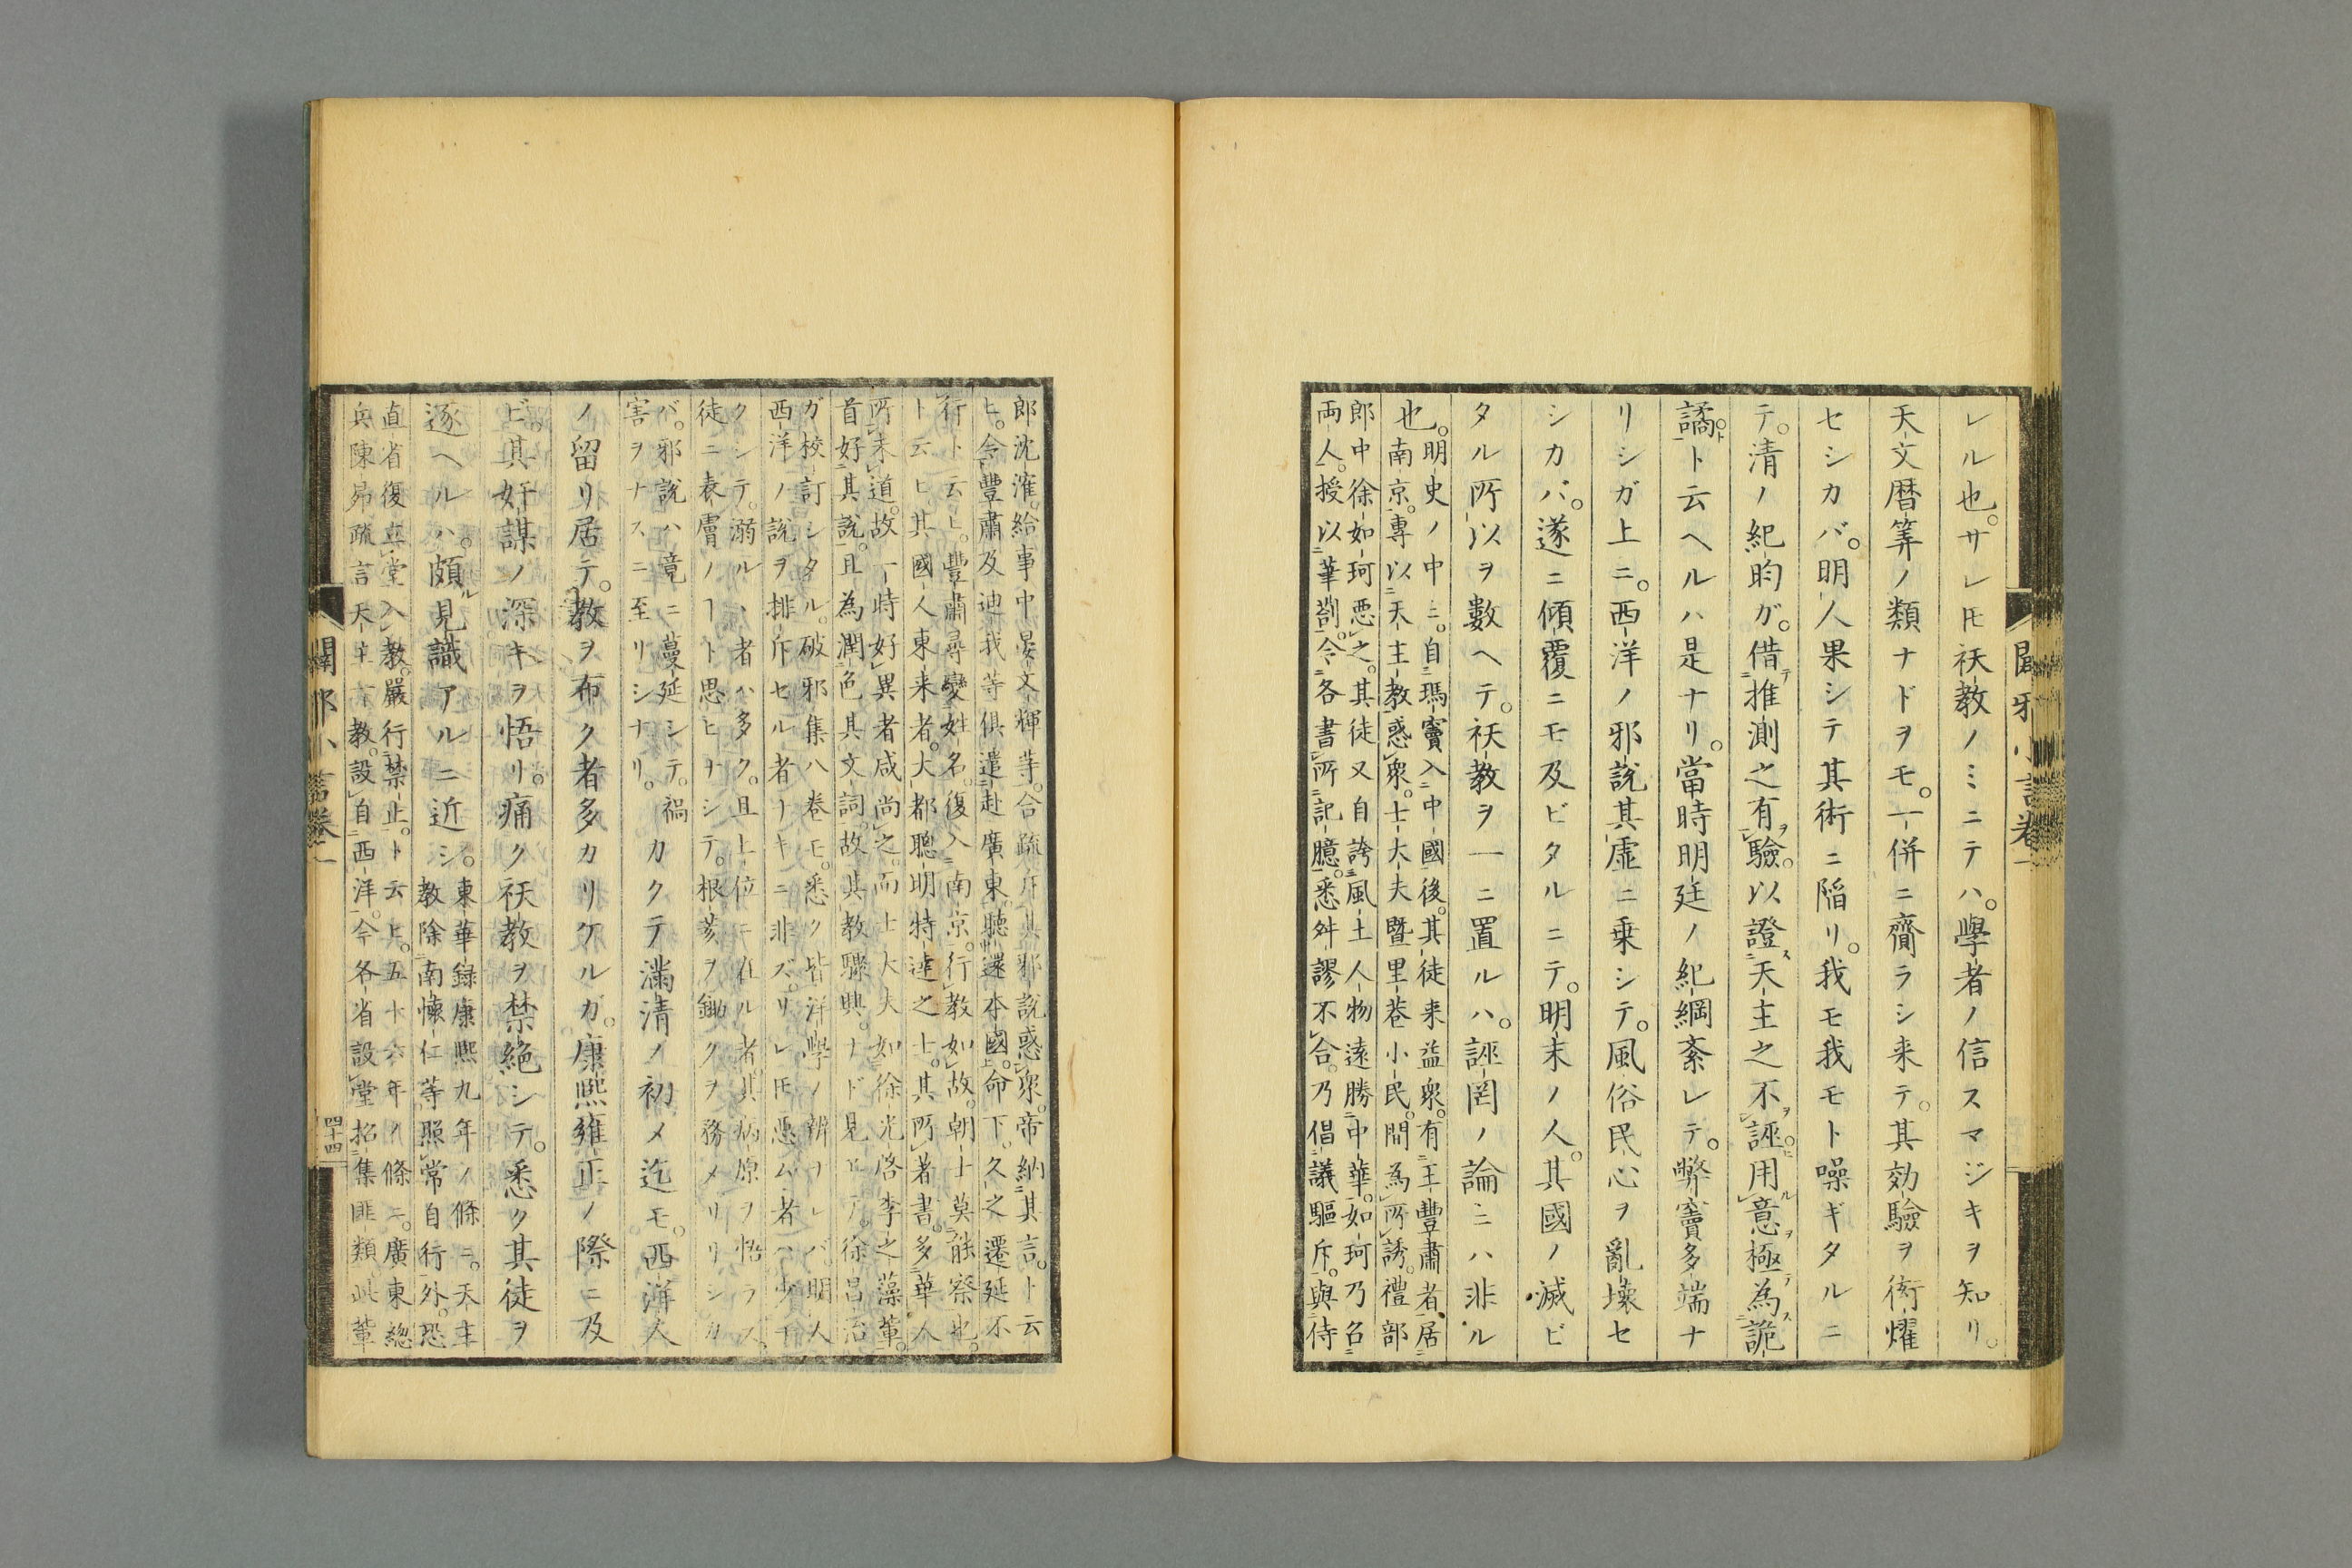 レル也。サレ𪜈祆教ノミニテハ。學者ノ信スマジキヲ知リ。
天文暦筭ノ類ナドヲモ。一併ニ齎ラシ来テ。其効驗ヲ衒燿
セシカバ。明人果シテ其術ニ陥リ。我モ我モト噪ギタルニ
テ。清ノ紀昀ガ。借テ推測之有ヲ驗。以證ス天主之不ヲ誣。用ルヲ意極テ為ス詭
譎ト。ト云ヘルハ是ナリ。當時明廷ノ紀綱紊レテ。弊竇多端ナ
リシガ上ニ。西洋ノ邪説其虚ニ乗シテ。風俗民心ヲ亂壞セ
シカバ。遂ニ傾覆ニモ及ビタルニテ。明末ノ人。其國ノ滅ビ
タル所以ヲ數ヘテ。祆教ヲ一ニ置ルハ。誣罔ノ論ニハ非ル
也。明史ノ中ニ。自瑪竇入中國後。其徒来益衆。有王豐肅者。居
南京。專以天主教惑衆。士大夫暨里巷小民。間為所誘。禮部
郎中徐如珂惡之。其徒又自誇風土人物遠勝中華。如珂乃召
両人。授以筆剳。令各書所記臆。悉舛謬不合。乃倡議驅斥。與侍
闢邪小言卷一
郎沈㴶。給事中晏文輝等。合疏斥其邪説惑衆。帝納其言。ト云
ヒ。令豐肅及迪我等俱遣赴廣東。聽還本國。命下。久之遷延不
行ト云ヒ。豐肅尋變姓名。復入南京。行教如故。朝士莫能察也。
ト云ヒ其國人東来者。大都聰明特達之士。其所著書。多華人
所未道。故一時好異者咸尚之。而士大夫如徐光啓李之藻輩。
首好其説。且為潤色其文詞。故其教驟興。ナド見ヱタリ。徐昌治
ガ校訂シタル。破邪集八卷モ。悉ク皆洋學ノ辨ヲレバ。明人
西洋ノ説ヲ排斥セル者ナキニ非ズ。サレ𪜈惡ム者ハ少ナ
クシテ。溺ルヽ者ハ多ク。且上位モ在ル者。其病原ヲ悟ラズ。
徒ニ表膚ノヿト思ヒナシテ。根荄ヲ鋤クヲ務メザリシカ
バ。邪説ハ竟ニ蔓延シテ。禍
害ヲナスニ至リシナリ。 カクテ滿清ノ初メ迄モ。西洋人
ノ留リ居テ。教ヲ布ク者多カリケルガ。康熙雍正ノ際ニ及
ビ。其奸謀ノ深キヲ悟リ。痛ク祆教ヲ禁絶シテ。悉ク其徒ヲ
逐ヘルハ。頗ル見識アルニ近シ。東華録康熙九年ノ條ニ。天主
教除南懐仁等照常自行外。恐
直省復立堂入教。嚴行禁止。ト云ヒ。五十六年ノ條ニ。廣東總
兵陳昴疏言天主一教。設自西洋。今各省設堂招集匪類此輩
闢邪小言卷一
四十四